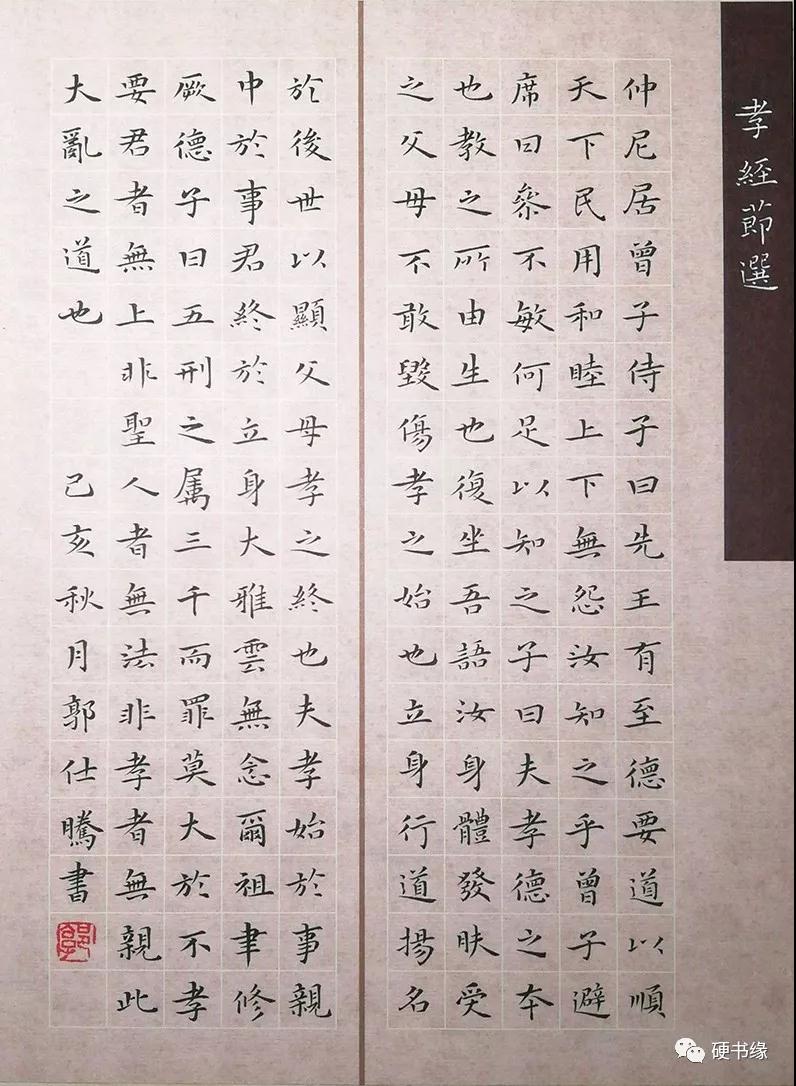 孝經節選
仲尼居曾子侍子曰先王有至德要道以順
天下民用和睦上下無怨汝知之乎曾子避
席曰參不敏何足以知之子曰夫孝德之本
也教之所由生也復坐吾語汝身體發肤受
之父母不敢毀傷孝之始也立身行道揚名
於後世以顯父母孝之終也夫孝始於事親
中於事君終於立身大雅雲無念爾祖聿修
厥德子曰五刑之属三千而罪莫大於不孝
要君者無上非聖人者無法非孝者無親此
大亂之道也 己亥秋月郭仕騰書
硬书缘